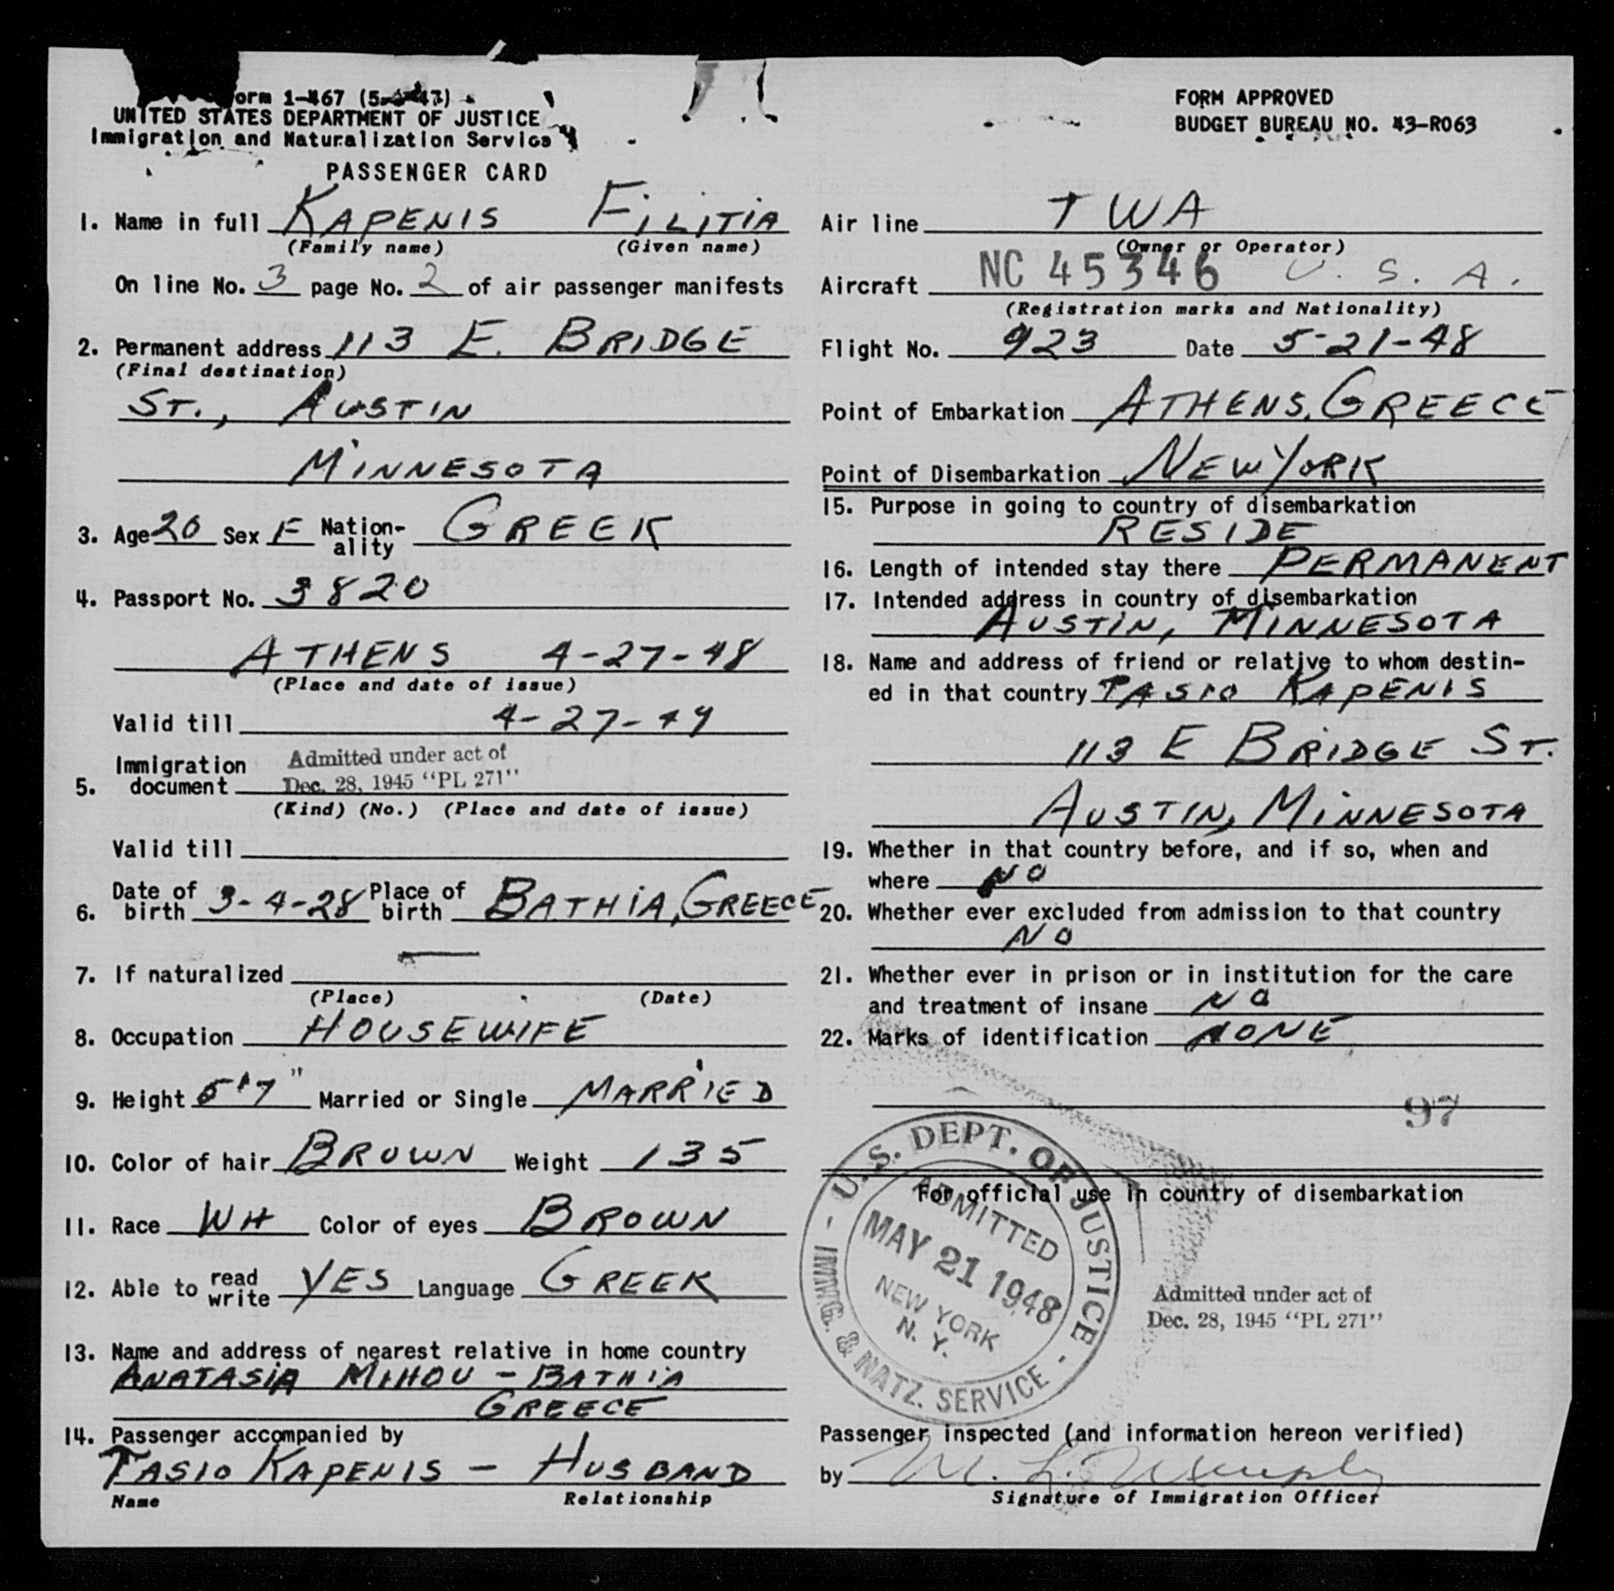 Form 1-467
UNITED STATES DEPARTMENT OF JUSTICE
Immigration and Naturalization Service
PASSENGER CARD
1. Name in full KAPENIS FILITIA
(Family name) (Given name)
On line No. 3 page No. 2 of air passenger manifests
2. Permanent address 113 E. BRIDGE
(Final destination)
ST., AUSTIN
MINNESOTA
3. Age 20 Sex F Nation-ality GREEK
4. Passport No. 3820
ATHENS 4-27-48
(Place and date of issue)
Valid till 4-27-49
5. Immigration document Admitted under act of
Dec. 28, 1945 "PL 271"
(Kind) (No.) (Place and date of issue)
Valid till
6. Date of birth 3-4-28 Place of birth BATHIA, GREECE
7. If naturalized —
(Place) (Date)
8. Occupation HOUSEWIFE
9. Height 5'7" Married or Single MARRIED
10. Color of hair BROWN Weight 135
11. Race WH Color of eyes BROWN
12. Able to read write YES Language GREEK
13. Name and address of nearest relative in home country
ANATASIA MIHOU - BATHIA
GREECE
14. Passenger accompanied by
TASIO KAPENIS - HUSBAND
Name Relationship
FORM APPROVED
BUDGET BUREAU NO. 43-R063
Air line TWA
(Owner or Operator)
Aircraft NC 45346 U.S.A.
(Registration marks and Nationality)
Flight No. 923 Date 5-21-48
Point of Embarkation ATHENS, GREECE
Point of Disembarkation NEW YORK
15. Purpose in going to country of disembarkation
RESIDE
16. Length of intended stay there PERMANENT
17. Intended address in country of disembarkation
AUSTIN, MINNESOTA
18. Name and address of friend or relative to whom destin-
ed in that country TASIO KAPENIS
113 E BRIDGE ST.
AUSTIN, MINNESOTA
19. Whether in that country before, and if so, when and
where NO
20. Whether ever excluded from admission to that country
NO
21. Whether ever in prison or in institution for the care
and treatment of insane NO
22. Marks of identification NONE
97
For official use in country of disembarkation
U.S. DEPT. OF JUSTICE
ADMITTED
MAY 21 1948
NEW YORK
N. Y.
IMMG. & NATZ. SERVICE
Admitted under act of
Dec. 28, 1945 "PL 271"
Passenger inspected (and information hereon verified)
by M. L. Murphy
Signature of Immigration Officer